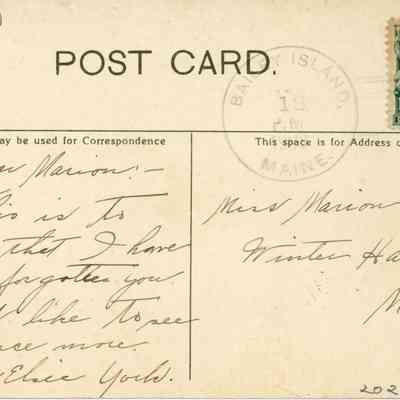 POST CARD.
BAILEY ISLAND,
18
P.M.
MAINE.
ay be used for Correspondence
This space is for Address o
Marion:—
is is to
that I have
forgotten you
like to see
nce more.
Elsie York.
Miss Marion
Winter Ha
M
202